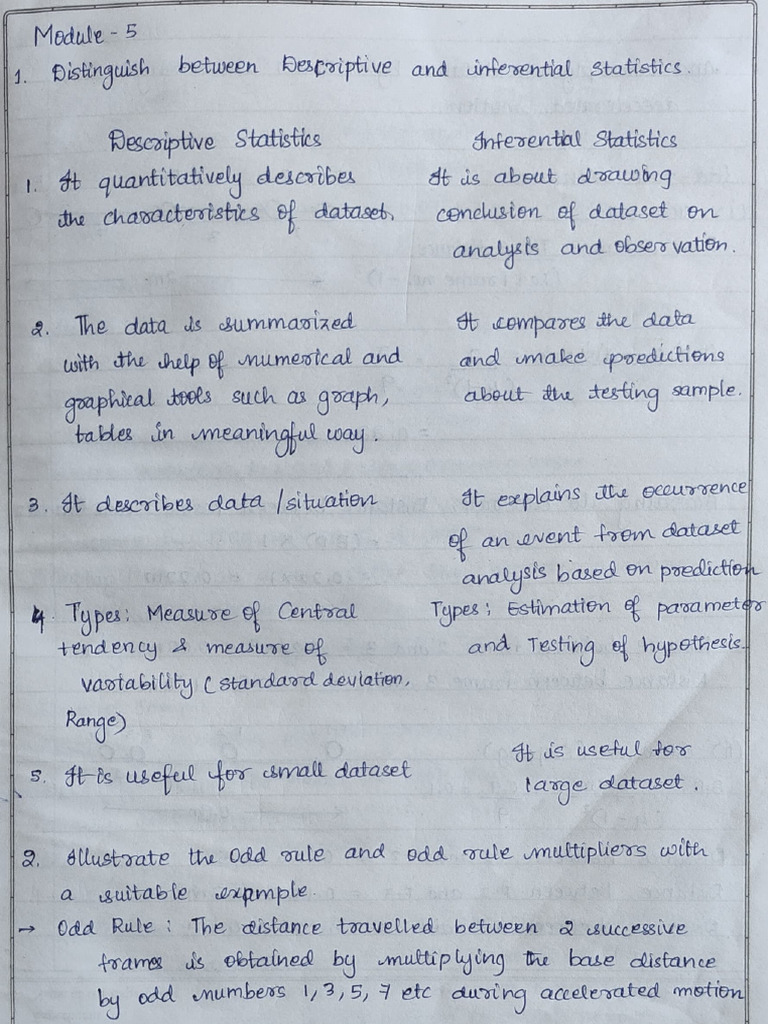 Module - 5
1. Distinguish between Descriptive and inferential Statistics.
Descriptive Statistics
1. It quantitatively describes
the characteristics of dataset.
2. The data is summarized
with the help of numerical and
graphical tools such as graph,
tables in meaningful way.
3. It describes data / situation
4. Types: Measure of Central
tendency & measure of
variability (Standard deviation,
Range)
5. It is useful for small dataset
Inferential Statistics
It is about drawing
conclusion of dataset on
analysis and observation.
It compares the data
and make predictions
about the testing sample.
It explains the occurrence
of an event from dataset
analysis based on prediction
Types: Estimation of parameter
and Testing of hypothesis.
It is useful for
large dataset.
2. Illustrate the Odd rule and odd rule multipliers with
a suitable expmple
→ Odd Rule : The distance travelled between 2 successive
frames is obtained by multiplying the base distance
by odd numbers 1, 3, 5, 7 etc during accelerated motion